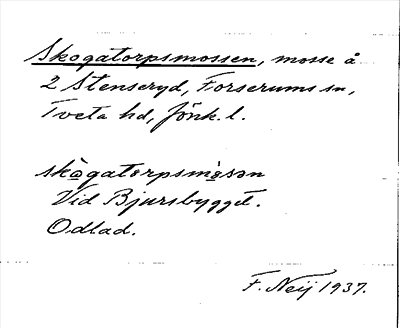 Skogatorpsmossen, mosse å
2 Stenseryd, Forserums sn,
Tveta hd, Jönk. l.
skògatorpsmòsən
Vid Bjursbygget.
Odlad.
F. Neij 1937.